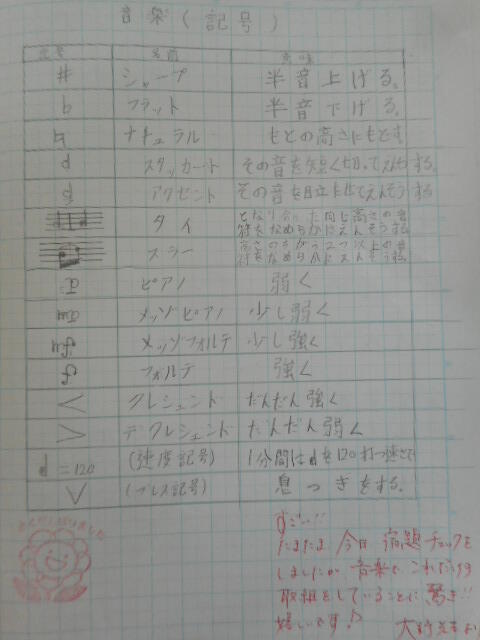 音楽(記号)
記号 名前 意味
# シャープ 半音上げる。
♭ フラット 半音下げる。
♮ ナチュラル もとの高さにもどす
スタッカート その音を短く切ってえんそうする。
アクセント その音を目立たせてえんそうする
タイ となり合った同じ高さの音
符をなめらかにえんそうする
スラー 高さのちがう2つ以上の音
符をなめらかにえんそうする
p ピアノ 弱く
mp メッゾピアノ 少し弱く
mf メッゾフォルテ 少し強く
f フォルテ 強く
< クレシェンド だんだん強く
> デクレシェンド だんだん弱く
♩=120 (速度記号) 1分間に♩を120打つ速さで
∨ (ブレス記号) 息つぎをする。
すごい!!
たまたま今日宿題チェックを
しましたが音楽でこれだけ
取組をしていることに驚き!!
嬉しいです♪